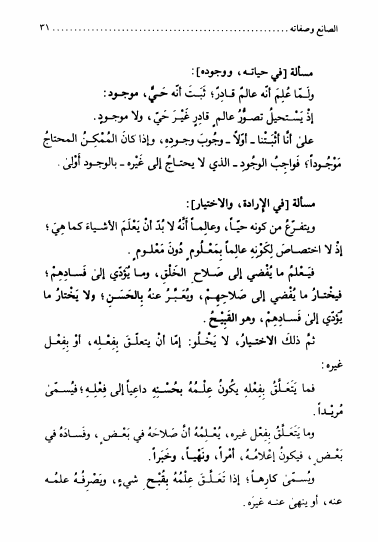 الصانع وصفاته ................................ ٣١
مسألة [في حياته، ووجوده]:
ولَـمّا عُلِمَ أنّه عالمٌ قادرٌ؛ ثَبَتَ أنّه حَيٌّ، موجود:
إذْ يَسْتحيلُ تصوُّرُ عالمٍ قادرٍ غَيْرَ حَيّ، ولا موجودٍ.
على أنّا أثْبَتْنا ـ أوّلاً ـ وجُوبَ وجودِهِ، وإذا كانَ المُمْكِنُ المحتاجُ
مَوْجُوداً؛ فواجِبُ الوجُودِ ـ الذي لا يحتاجُ إلى غَيْره ـ بالوجودِ أوْلىٰ.
مسألة [في الإرادة، والاختيار]:
ويتفرّعُ من كونه حيّاً، وعالماً أنَّهُ لا بُدّ أنْ يَعْلَمَ الأشياءَ كما هِيَ؛
إذْ لا اختصاصَ لِكَوْنِهِ عالماً بِمَعْلُومٍ دُونَ مَعْلومٍ.
فيَعْلمُ ما يُفْضي إلى صَلاحِ الخَلْقِ، وما يُؤدّي إلىٰ فسادِهِمْ؛
فيختارُ ما يُفْضي إلى صَلاحِهِمْ، ويُعَبَّرُ عنهُ بالحَسَنِ؛ ولا يَخْتارُ ما
يُؤدّي إلىٰ فَسادِهِمْ، وهو القَبِيْحُ.
ثمّ ذلكَ الاختيارُ، لا يَخْلُو: إمّا أنْ يتعلّقَ بِفِعْلِهِ، أوْ بِفِعْل
غيره:
فما يَتَعَلَّقُ بِفِعْلِهِ يكُونُ عِلْمُهُ بحُسْنِهِ داعياً إلى فِعْلِهِ؛ فيُسمّىٰ
مُريْداً.
وما يَتَعَلَّقُ بِفِعْل غيره، يُعْلِمُهُ أنّ صَلاحَهُ في بَعْضٍ، وفَسادَهُ في
بَعْضٍ، فيكونُ إعْلامُهُ، أمْراً، ونَهْياً، وخَبَراً.
ويُسمّى كارهاً؛ إذا تَعَلَّقَ عِلْمُهُ بِقُبْحِ شيءٍ، ويَصْرِفُهُ علمُه
عنه، أو ينهىٰ عنـه غيرَه.